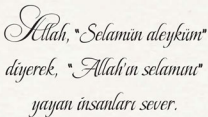 Allah, "Selamün aleyküm"
diyerek, "Allah'ın selamını"
yayan insanları sever.